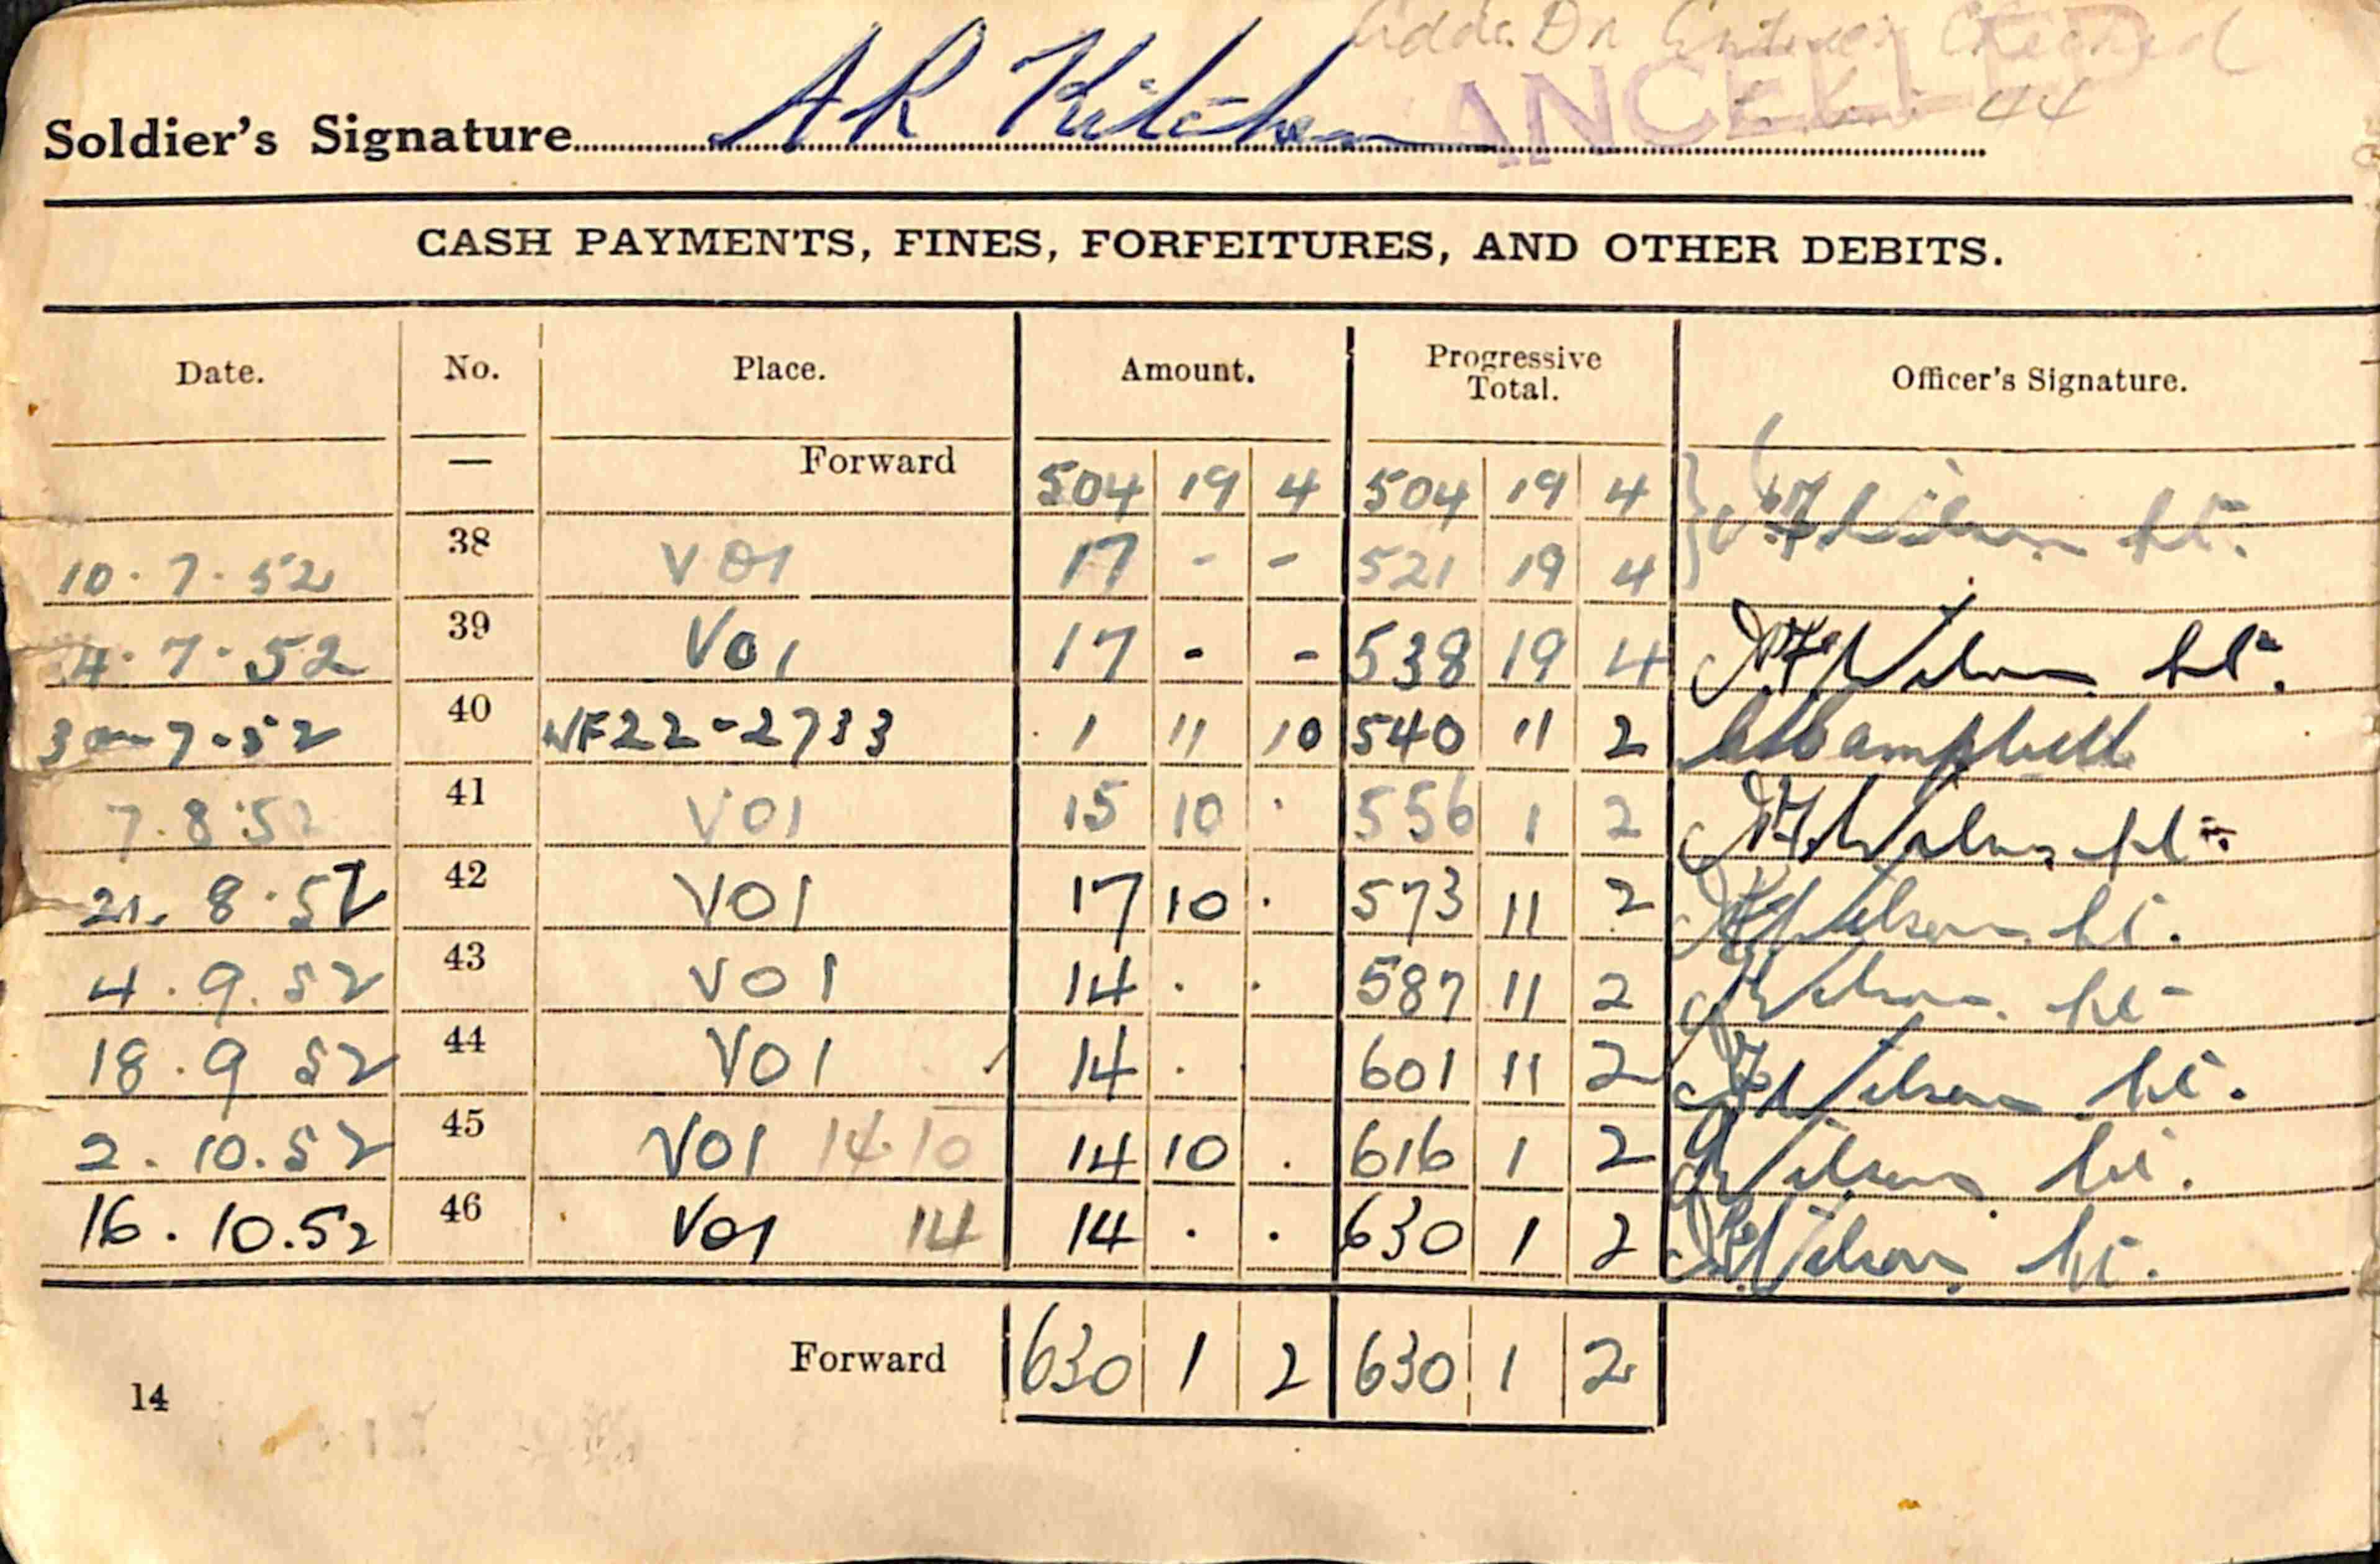 Adds. Dr Entries Checked
ANCELLED
44
Soldier's Signature AR Kitchen
CASH PAYMENTS, FINES, FORFEITURES, AND OTHER DEBITS.
Date. No. Place. Amount. Progressive Total. Officer's Signature.
— Forward 504 19 4 504 19 4
10.7.52 38 V01 17 - - 521 19 4 Wilson Lt.
4.7.52 39 V01 17 - - 538 19 4 Wilson Lt.
30-7-52 40 WF22-2733 1 11 10 540 11 2 Campbell
7.8.52 41 V01 15 10 . 556 1 2 Wilson Lt.
21.8.52 42 V01 17 10 . 573 11 2 Wilson Lt.
4.9.52 43 V01 14 . . 587 11 2 Wilson Lt
18.9 52 44 V01 14 . . 601 11 2 Wilson Lt.
2.10.52 45 V01 14 10 14 10 . 616 1 2 Wilson Lt.
16.10.52 46 V01 14 14 . . 630 1 2 Wilson Lt.
Forward 630 1 2 630 1 2
14